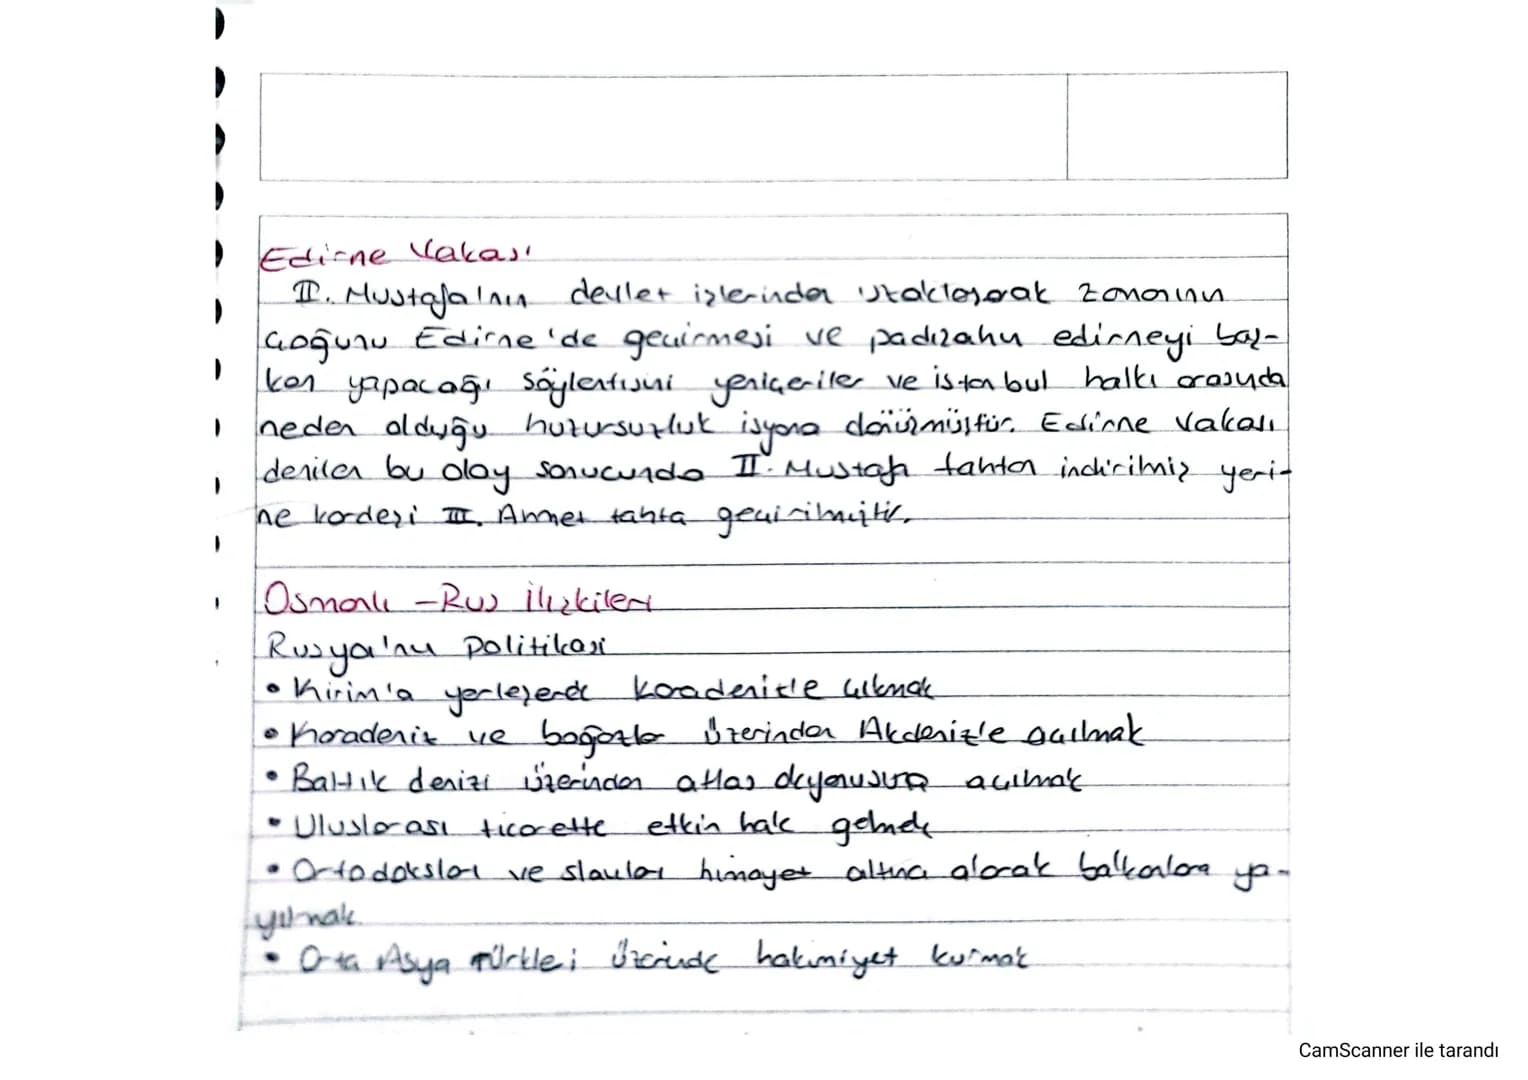 Edirne Vakası
II. Mustafa'nın devlet işlerinden uzaklaşarak zamanının
çoğunu Edirne'de geçirmesi ve padişahın edirneyi baş-
kent yapacağı söylentisini yeniçeriler ve istanbul halkı arasında
neden olduğu huzursuzluk isyana dönüşmüştür. Edirne Vakası
denilen bu olay sonucunda II. Mustafa tahtan indirilmiş yeri-
ne kardeşi III. Ahmet tahta geçirilmiştir.
Osmanlı - Rus İlişkileri
Rusya'nın politikası
• Kırım'a yerleşerek karadeniz'e çıkmak
• Karadeniz ve boğazlar üzerinden Akdeniz'e açılmak
• Baltık denizi üzerinden atlas okyonusuna açılmak
• Uluslarası ticarette etkin hale gelmek
• Ortodoksları ve slavları himayet altına alarak balkanlara ya-
yılmak.
• Orta Asya Türkleri üzerinde hakimiyet kurmak
CamScanner ile tarandı